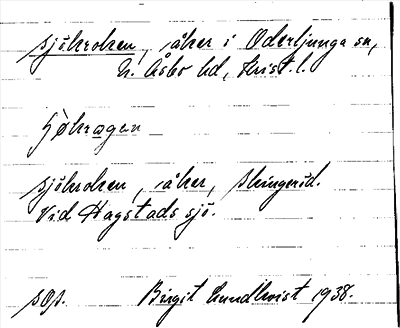 sjökroken, åker i Oderljunga sn,
N. Åsbo hd, Krist. l.
sjökroken, åker, Skingeröd.
Vid Hagstads sjö.
sop. Birgit Lundkvist 1938.